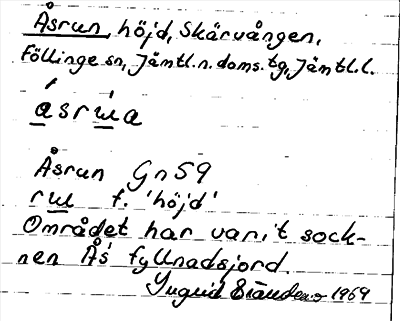 Åsrun, höjd, Skärvången,
Föllinge sn, Jämtl.n.doms.tg, Jämtl.l.
ásrɯ́a
Åsrun GnS9
rɯ f. 'höjd'
Området har varit sock-
nen Ås fyllnadsjord.
Ingrid 1969